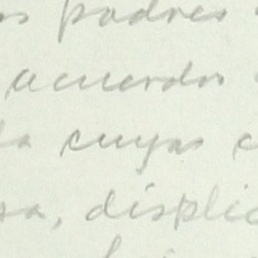 os padres
acuerdos
la cuyas c
sa, displic